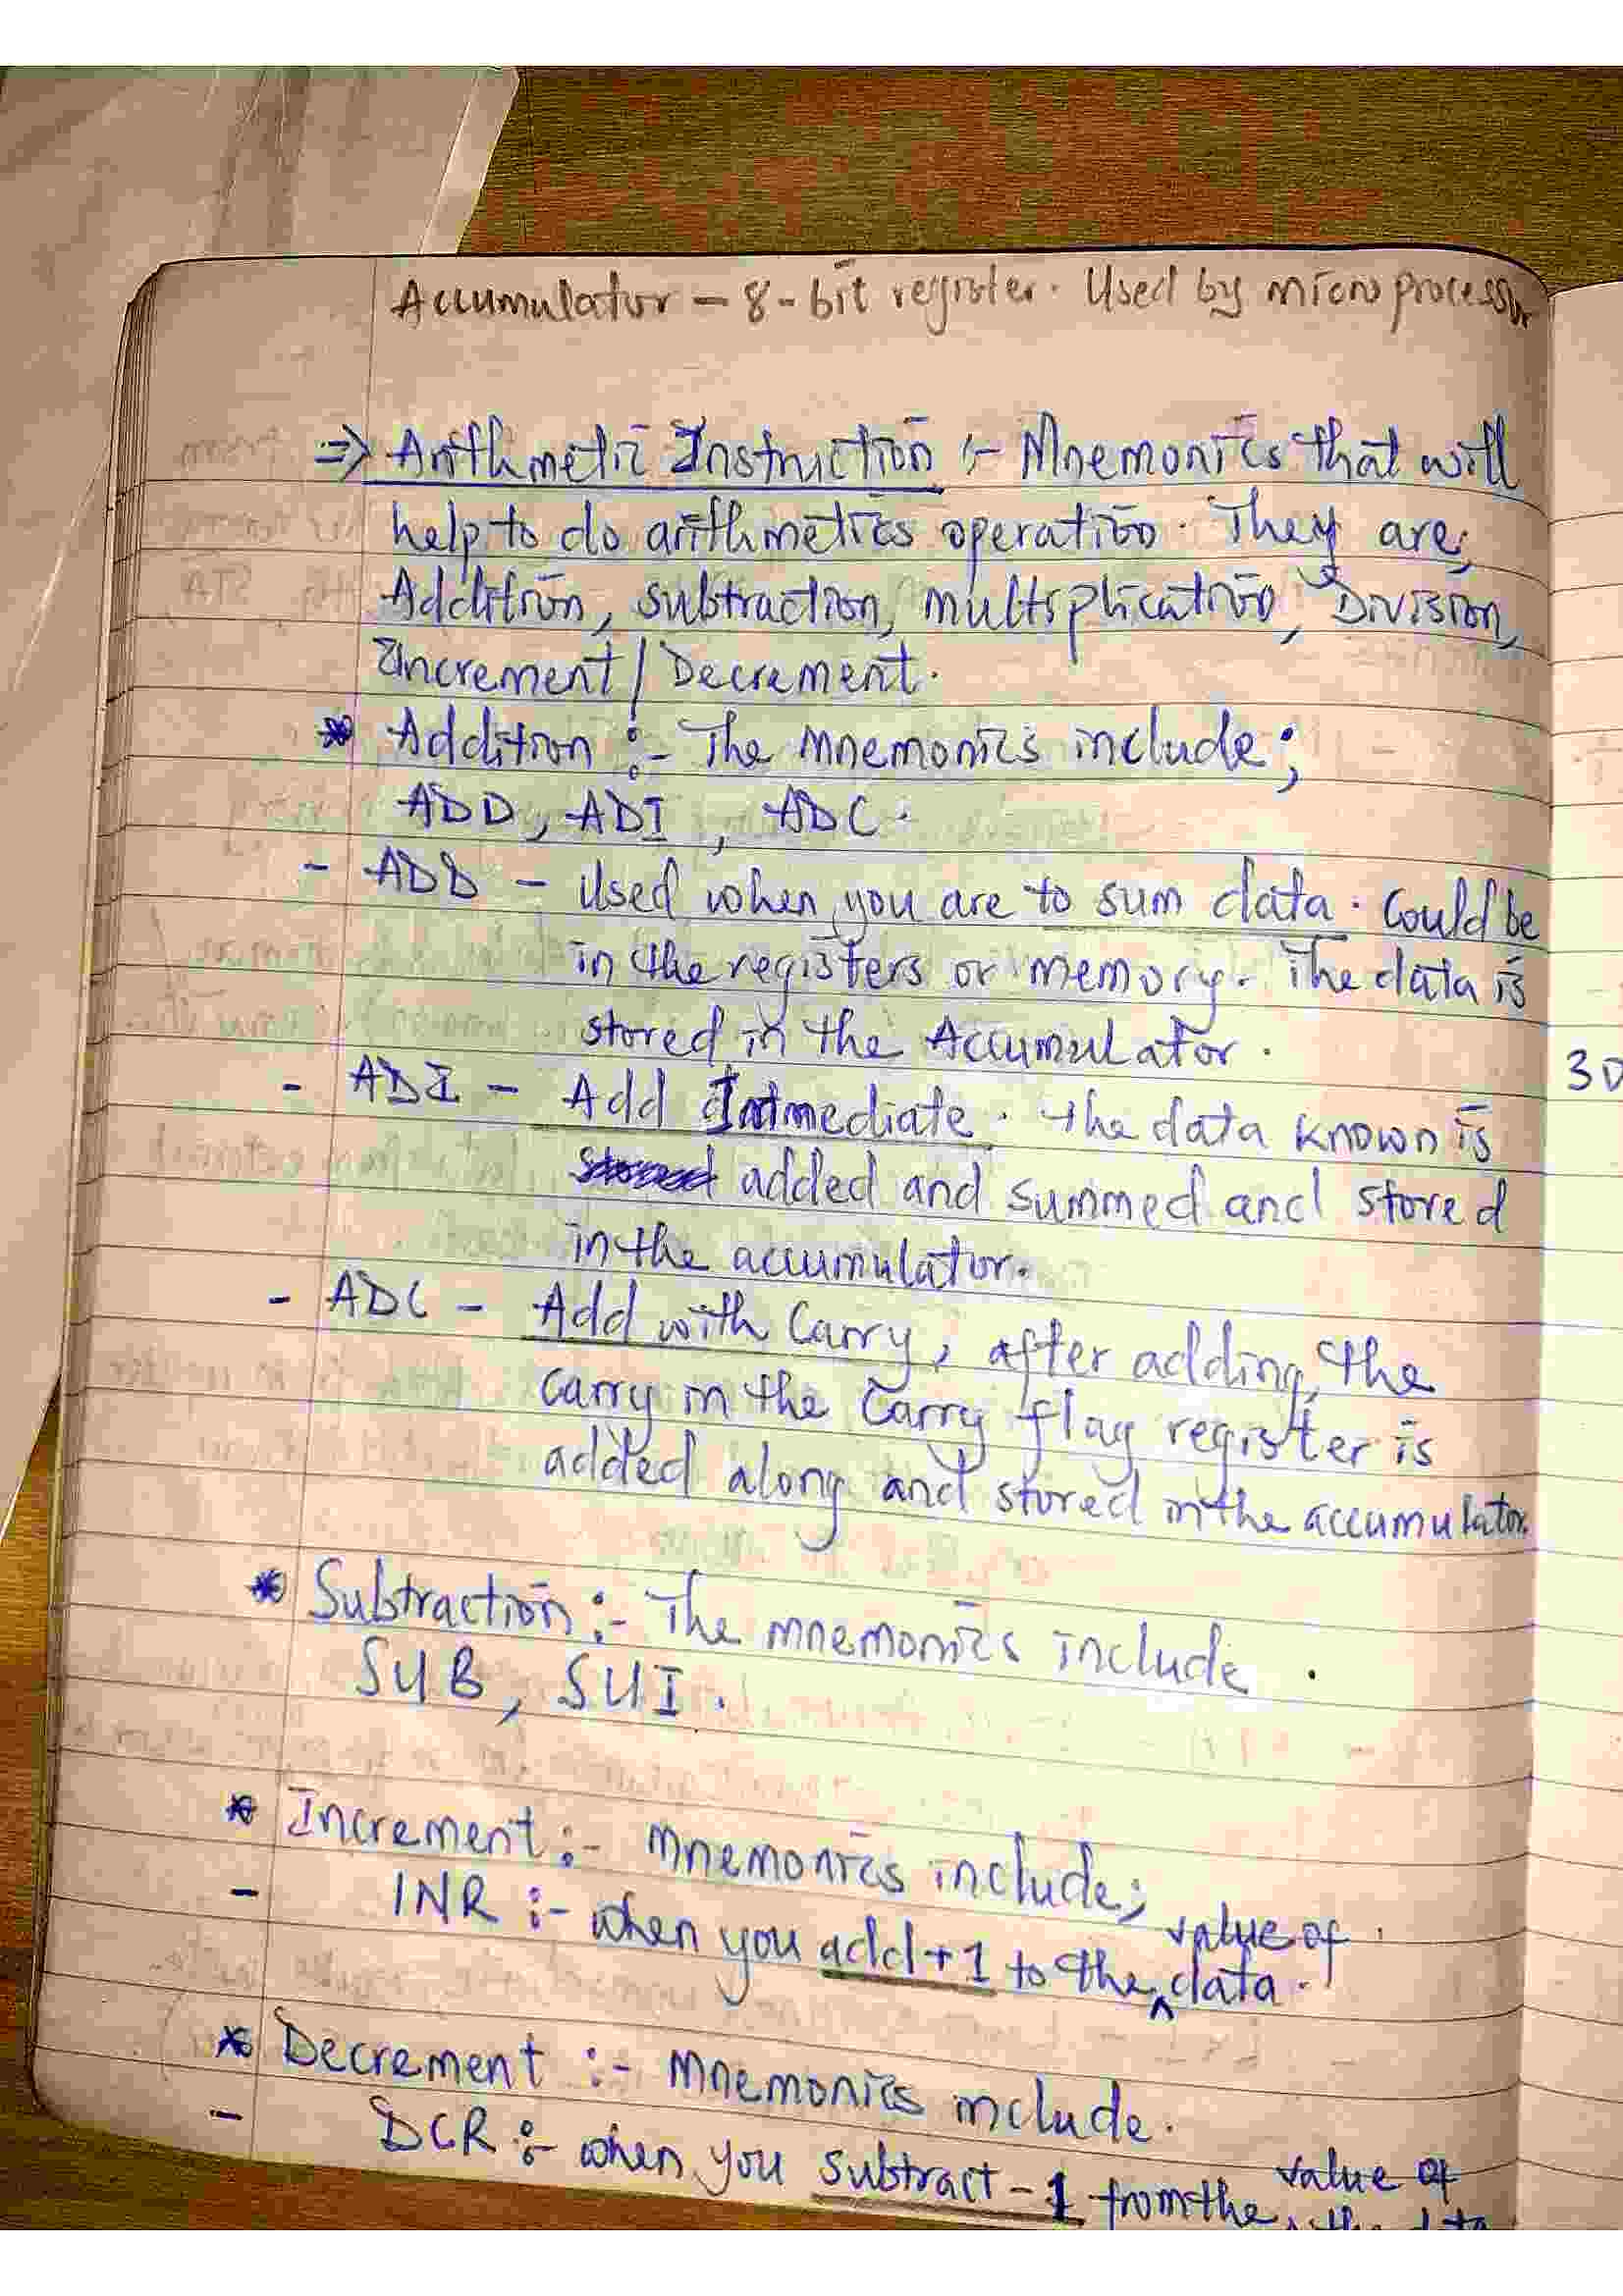 Accumulator - 8-bit register. Used by microprocessor
=> Arithmetic Instruction :- Mnemonics that will
help to do arithmetics operation. They are;
Addition, subtraction, multiplication, Division,
Increment/Decrement.
* Addition :- The mnemonics include;
ADD, ADI, ADC.
- ADD - Used when you are to sum data. Could be
in the registers or memory. The data is
stored in the Accumulator.
3D
- ADI - Add Immediate. The data known is
added and summed and stored
in the accumulator.
- ADC - Add with Carry, after adding, the
carry in the Carry flag register is
added along and stored in the accumulator.
* Subtraction :- The mnemonics include.
SUB, SUI.
* Increment :- Mnemonics include;
- INR :- when you add +1 to the value of data.
* Decrement :- Mnemonics include.
- DCR :- when you subtract -1 from the value of
the data